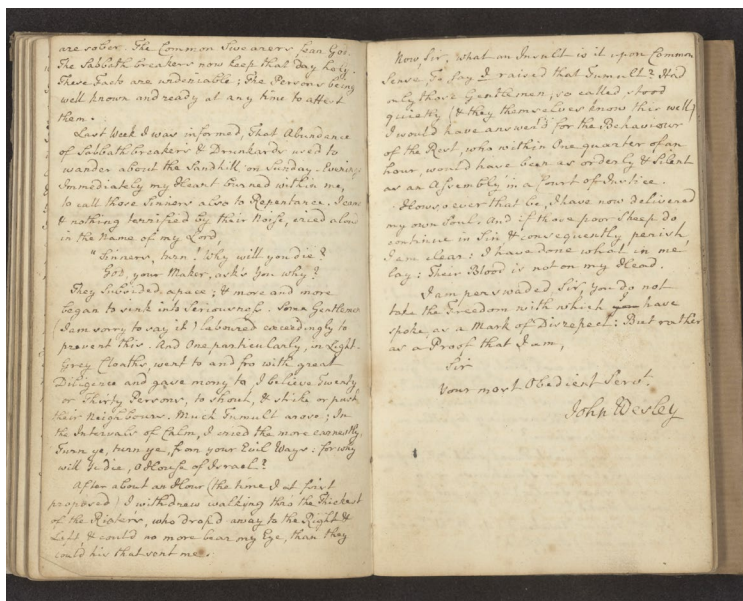 are sober. The Common Swearers, fear God.
The Sabbath breakers now keep that day holy.
These Facts are undeniable; The Persons being
well known and ready at any time to attest
them.
Last Week I was informed, that Abundance
of Sabbath breakers & Drunkards used to
wander about the Sandhill, on Sunday-Evenings
Immediately my Heart burned within me,
to call those Sinners also to Repentance. I came
& nothing terrified by their Noise, cried aloud
in the Name of my Lord,
"Sinners, turn! Why will you die?
God, your Maker, asks you why?
They subsided apace; & more and more
began to sink into Seriousness. Some Gentlemen
(I am sorry to say it) laboured exceedingly to
prevent this. And One, particularly, in Light
Grey Cloaths, went to and fro with great
Diligence and gave mony to, I believe Twenty
or Thirty Persons, to shout, & strike or push
their Neighbours. Much Tumult arose; In
the Intervals of Calm, I cried the more earnestly,
Turn ye, turn ye, from your Evil Ways: for why
will ye die, O House of Israel?
After about an Hour (the time I at first
proposed) I withdrew walking thro' the Thickest
of the Rioters, who drop'd away to the Right &
Left & could no more bear my Eye, than they
could his that sent me.
Now Sir, what an Insult is it upon Common
Sense To say I raised that Tumult? Had
only those Gentlemen, so called stood
quietly (& they themselves know this well)
I would have answer'd for the Behaviour
of the Rest, who within One quarter of an
hour, would have been as orderly & Silent
as an Assembly in a Court of Justice.
Howsoever that be, I have now delivered
my own Soul. And if those poor Sheep do
continue in Sin & consequently perish
I am clear: I have done what in me
lay: Their Blood is not on my Head.
I am perswaded Sir, you do not
take the Freedom with which I have
spoke as a Mark of Disrespect: But rather
as a Proof that I am,
Sir
Your most Obedient Servt.
John Wesley